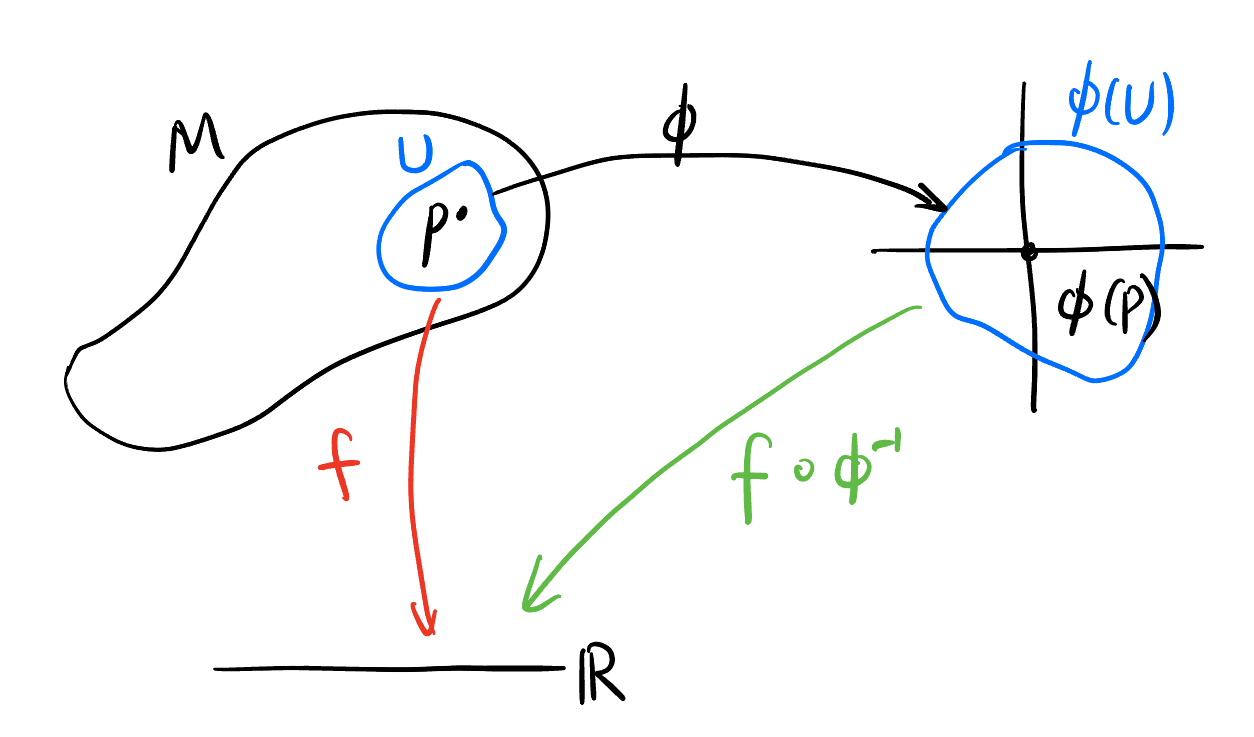 M
U
p
ϕ
ϕ(U)
ϕ(p)
f
f ∘ ϕ⁻¹
ℝ